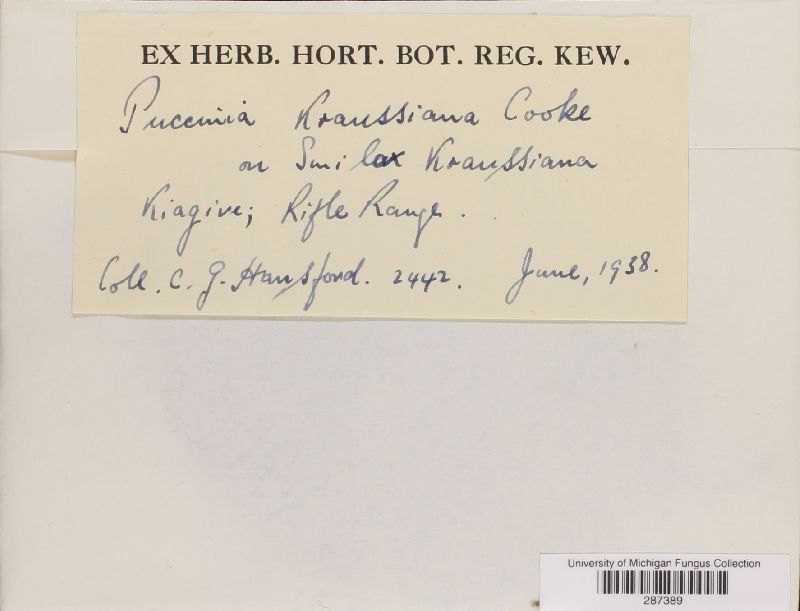 EX HERB. HORT. BOT. REG. KEW.
Puccinia Kraussiana Cooke
on Smilax Kraussiana
Kiagive; Rifle Range.
Coll. C. G. Hansford. 2442. June, 1938.
University of Michigan Fungus Collection
287389